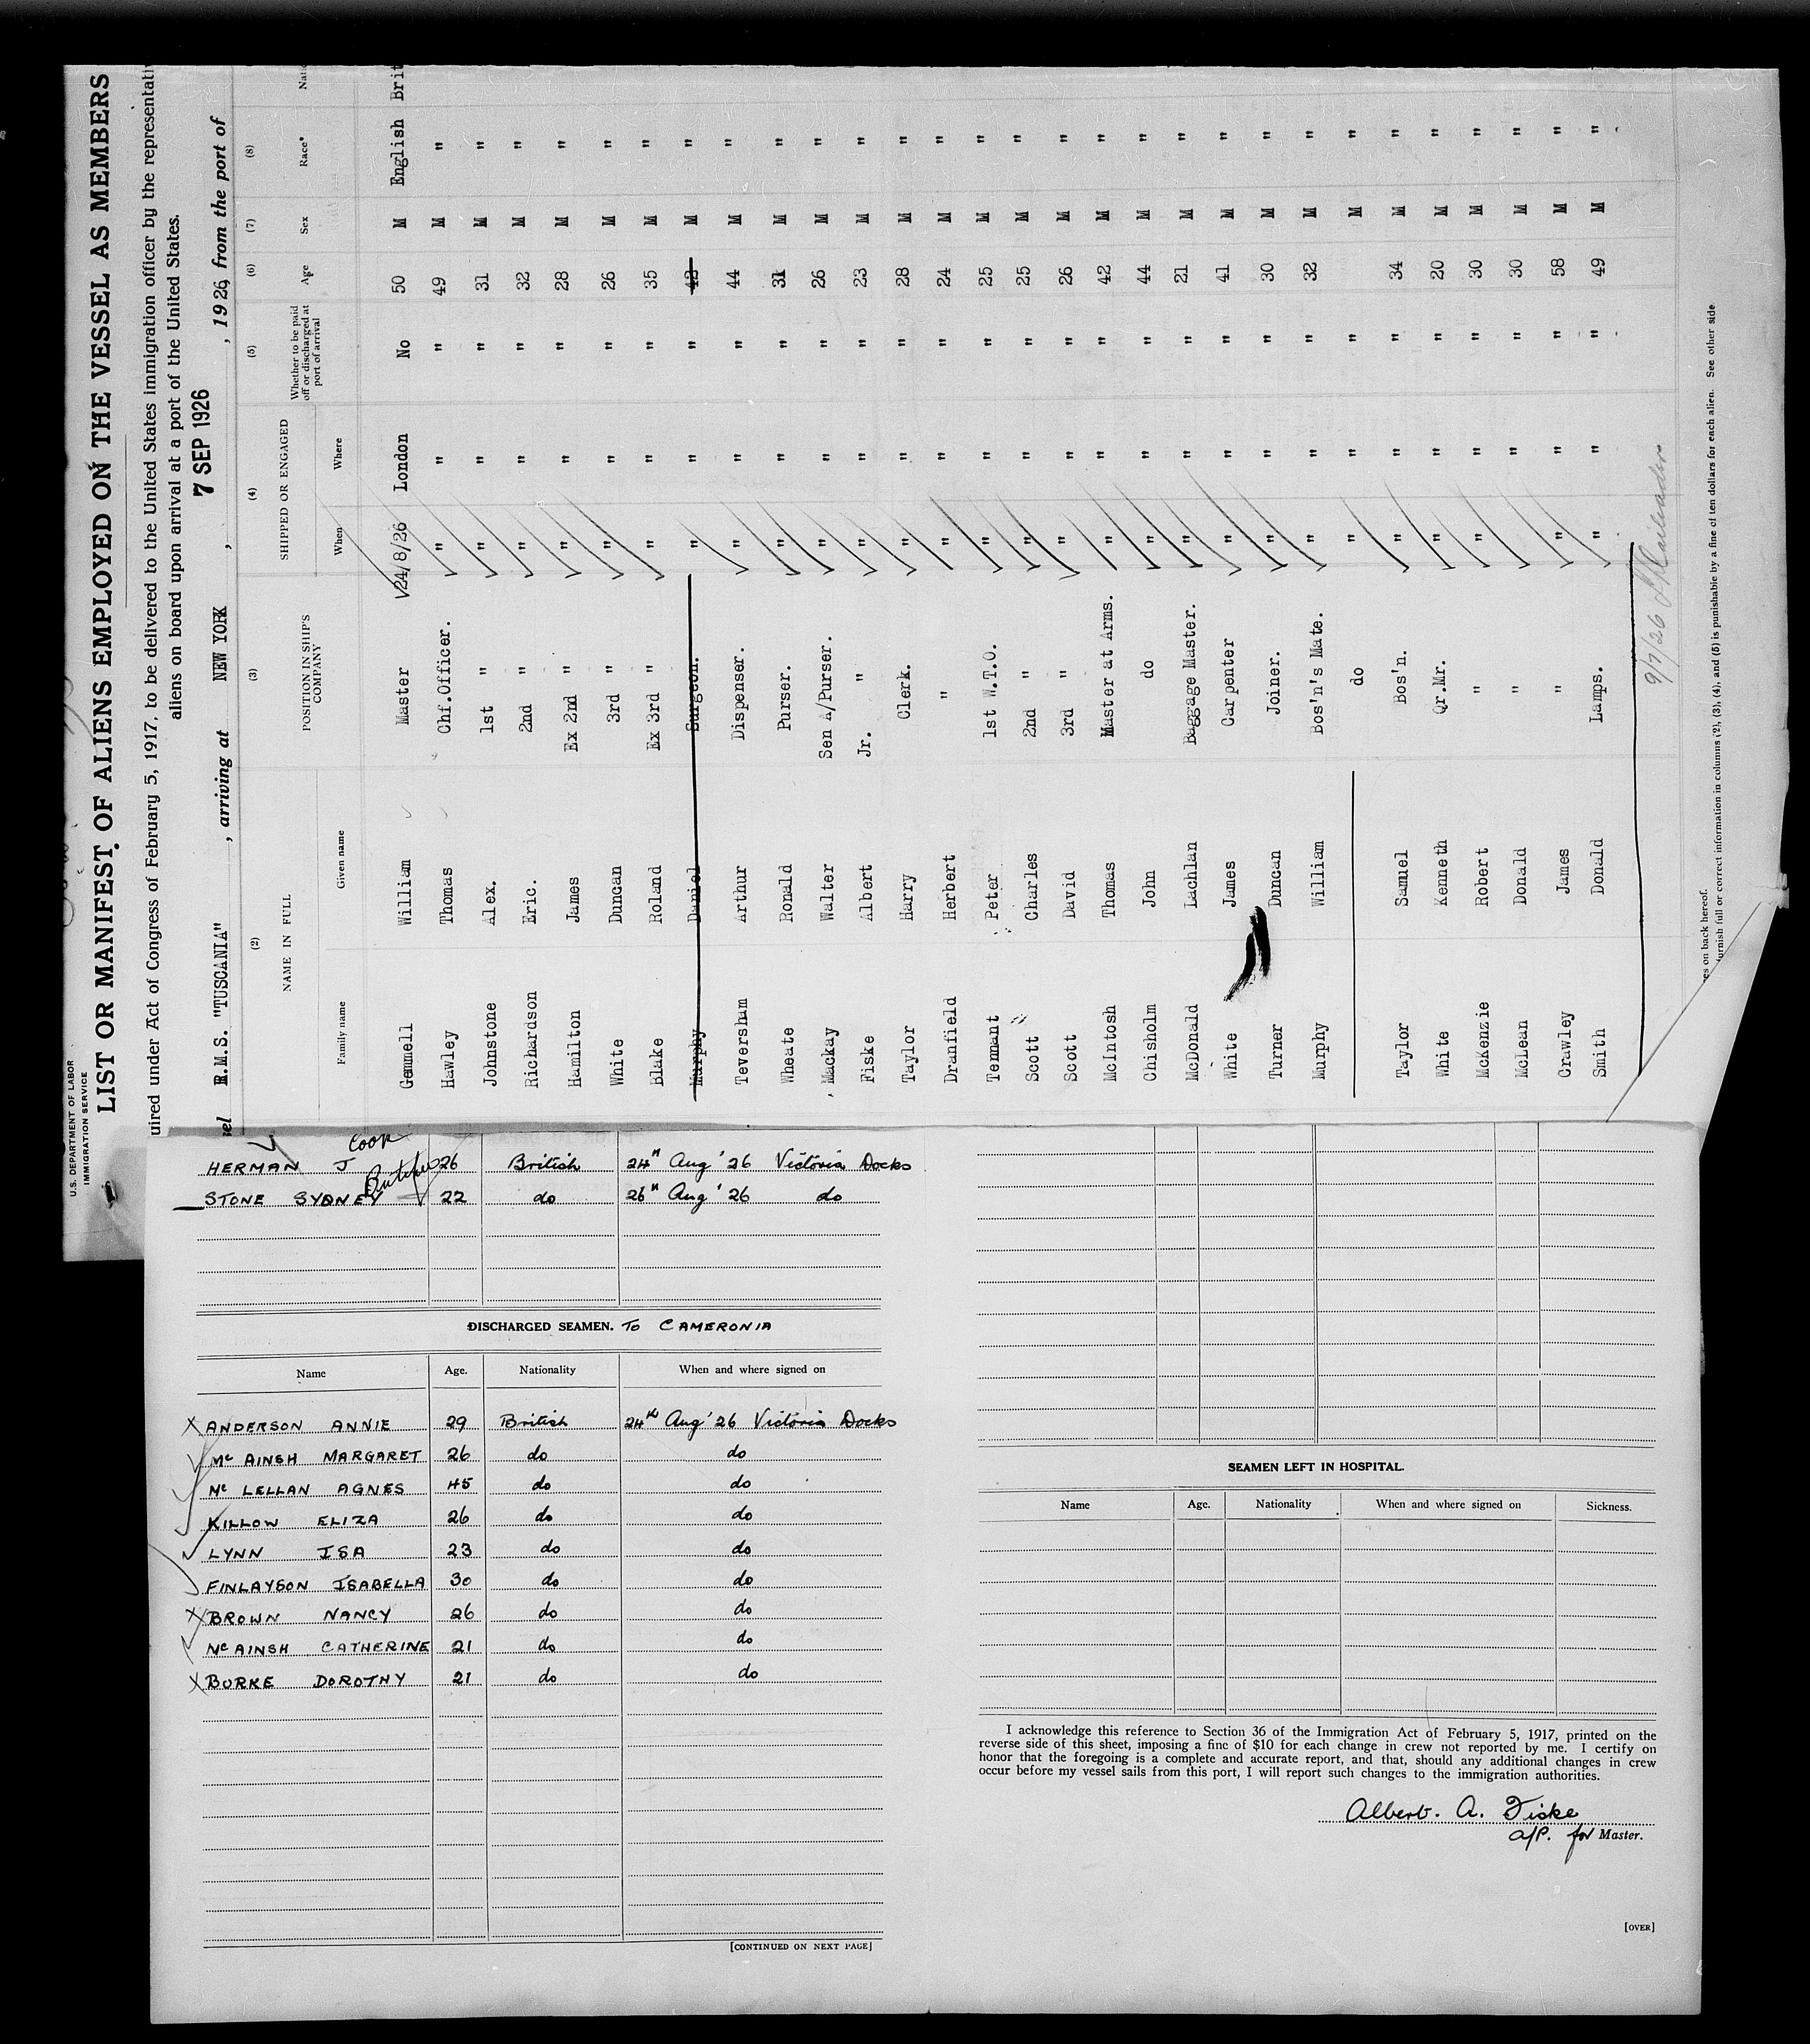 U.S. DEPARTMENT OF LABOR
IMMIGRATION SERVICE
LIST OR MANIFEST OF ALIENS EMPLOYED ON THE VESSEL AS MEMBERS
uired under Act of Congress of February 5, 1917, to be delivered to the United States immigration officer by the representativ
aliens on board upon arrival at a port of the United States.
7 SEP 1926
sel R.M.S. "TUSCANIA" , arriving at NEW YORK , , 1926, from the port of
(2) (3) (4) (5) (6) (7) (8)
NAME IN FULL POSITION IN SHIP'S COMPANY SHIPPED OR ENGAGED Whether to be paid off or discharged at port of arrival Age Sex Race* Natio
Family name Given name When Where
Gemmell William Master 24/8/26 London No 50 M English Brit
Hawley Thomas Chf.Officer. " " " 49 M "
Johnstone Alex. 1st " " " " 31 M "
Richardson Eric. 2nd " " " " 32 M "
Hamilton James Ex 2nd " " " " 28 M "
White Duncan 3rd " " " " 26 M "
Blake Roland Ex 3rd " " " " 35 M "
Murphy Daniel Surgeon. " " " 43 M "
Teversham Arthur Dispenser. " " " 44 M "
Wheate Ronald Purser. " " " 31 M "
Mackay Walter Sen A/Purser. " " " 26 M "
Fiske Albert Jr. " " " " 23 M "
Taylor Harry Clerk. " " " 28 M "
Dranfield Herbert " " " " 24 M "
Tennant Peter 1st W.T.O. " " " 25 M "
Scott Charles 2nd " " " " 25 M "
Scott David 3rd " " " " 26 M "
McIntosh Thomas Master at Arms. " " " 42 M "
Chisholm John do " " " 44 M "
McDonald Lachlan Baggage Master. " " " 21 M "
White James Carpenter " " " 41 M "
Turner Duncan Joiner. " " " 30 M "
Murphy William Bos'n's Mate. " " " 32 M "
do " " " M "
Taylor Samuel Bos'n. " " " 34 M "
White Kenneth Qr.Mr. " " " 20 M "
McKenzie Robert " " " " 30 M "
McLean Donald " " " " 30 M "
Crawley James " " " " 58 M "
Smith Donald Lamps. " " " 49 M "
9/7/26
es on back hereof.
urnish full or correct information in columns (2), (3), (4), and (5) is punishable by a fine of ten dollars for each alien. See other side
Cook
HERMAN J 26 British 24th Aug '26 Victoria Docks
Butcher
STONE SYDNEY 22 do 26th Aug '26 do
DISCHARGED SEAMEN. TO CAMERONIA
Name Age. Nationality When and where signed on
X ANDERSON ANNIE 29 British 24th Aug '26 Victoria Docks
Mc AINSH MARGARET 26 do do
Mc LELLAN AGNES 45 do do
KILLOW ELIZA 26 do do
LYNN ISA 23 do do
FINLAYSON ISABELLA 30 do do
X BROWN NANCY 26 do do
Mc AINSH CATHERINE 21 do do
X BURKE DOROTHY 21 do do
[CONTINUED ON NEXT PAGE]
SEAMEN LEFT IN HOSPITAL.
Name Age. Nationality When and where signed on Sickness.
I acknowledge this reference to Section 36 of the Immigration Act of February 5, 1917, printed on the
reverse side of this sheet, imposing a fine of $10 for each change in crew not reported by me. I certify on
honor that the foregoing is a complete and accurate report, and that, should any additional changes in crew
occur before my vessel sails from this port, I will report such changes to the immigration authorities.
Albert. A. Fiske
a/P. for Master.
[OVER]